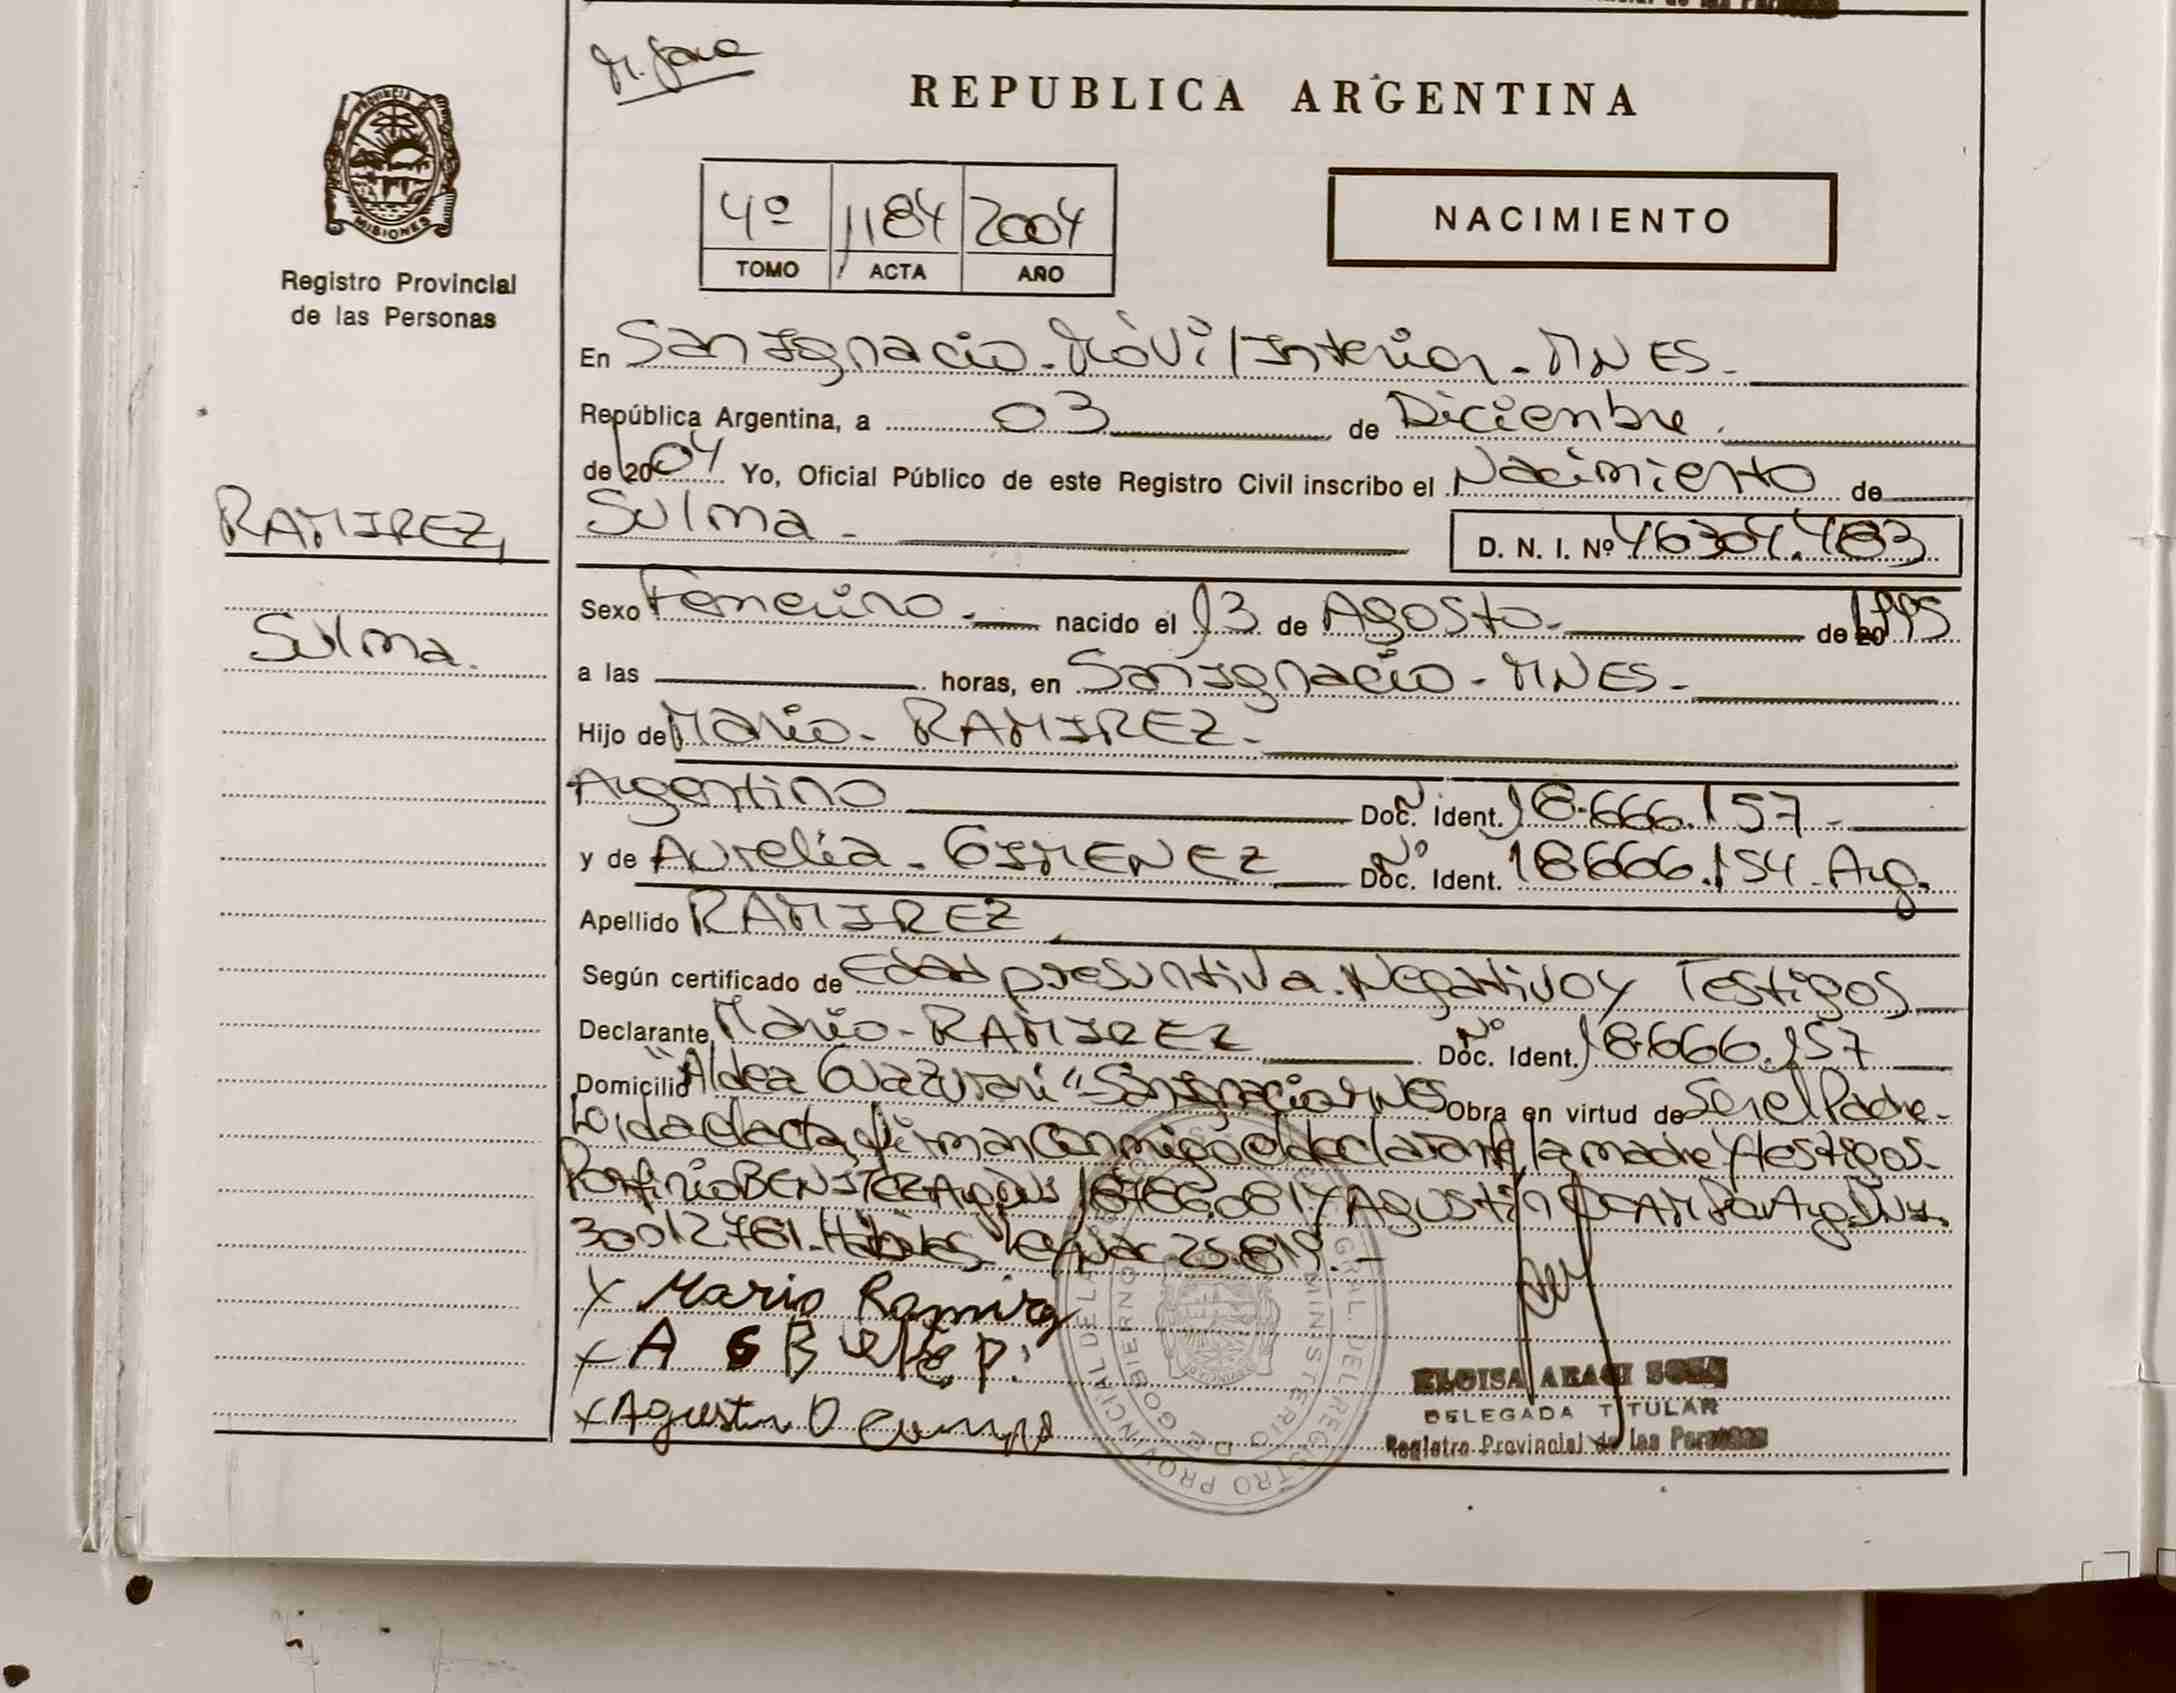 M. Jara
REPUBLICA ARGENTINA
PROVINCIA DE
MISIONES
Registro Provincial
de las Personas
4º 1184 2004
TOMO ACTA AÑO
NACIMIENTO
En San Ignacio - Móvil Interior - MNES -
República Argentina, a 03 de Diciembre
de 2004 Yo, Oficial Público de este Registro Civil inscribo el Nacimiento de
RAMIREZ,
Sulma -
D. N. I. Nº 46304.483
Sexo Femenino - nacido el 13 de Agosto - de 20 1995
Sulma.
a las horas, en San Ignacio - MNES -
Hijo de Mario - RAMIREZ -
Argentino Doc. Ident. Nº 18.666.157 -
y de Aurelia - GIMENEZ Doc. Ident. Nº 18.666.154 - Arg.
Apellido RAMIREZ
Según certificado de Edad presuntiva. Negativo y Testigos
Declarante Mario - RAMIREZ Doc. Ident. Nº 18.666.157
Domicilio "Aldea Guazurari" - San Ignacio MNES Obra en virtud de Ser el Padre -
Leida el acta, firman conmigo el declarante, la madre y testigos -
Porfirio BENITEZ Arg 18786.081 y Agustin OCAMPO Arg. DNI.
30012.781 - Hábiles Ley 25.819. -
x Mario Ramirez
x A G B
x Agustin Ocampo
DELEGADA TITULAR
Registro Provincial de las Personas